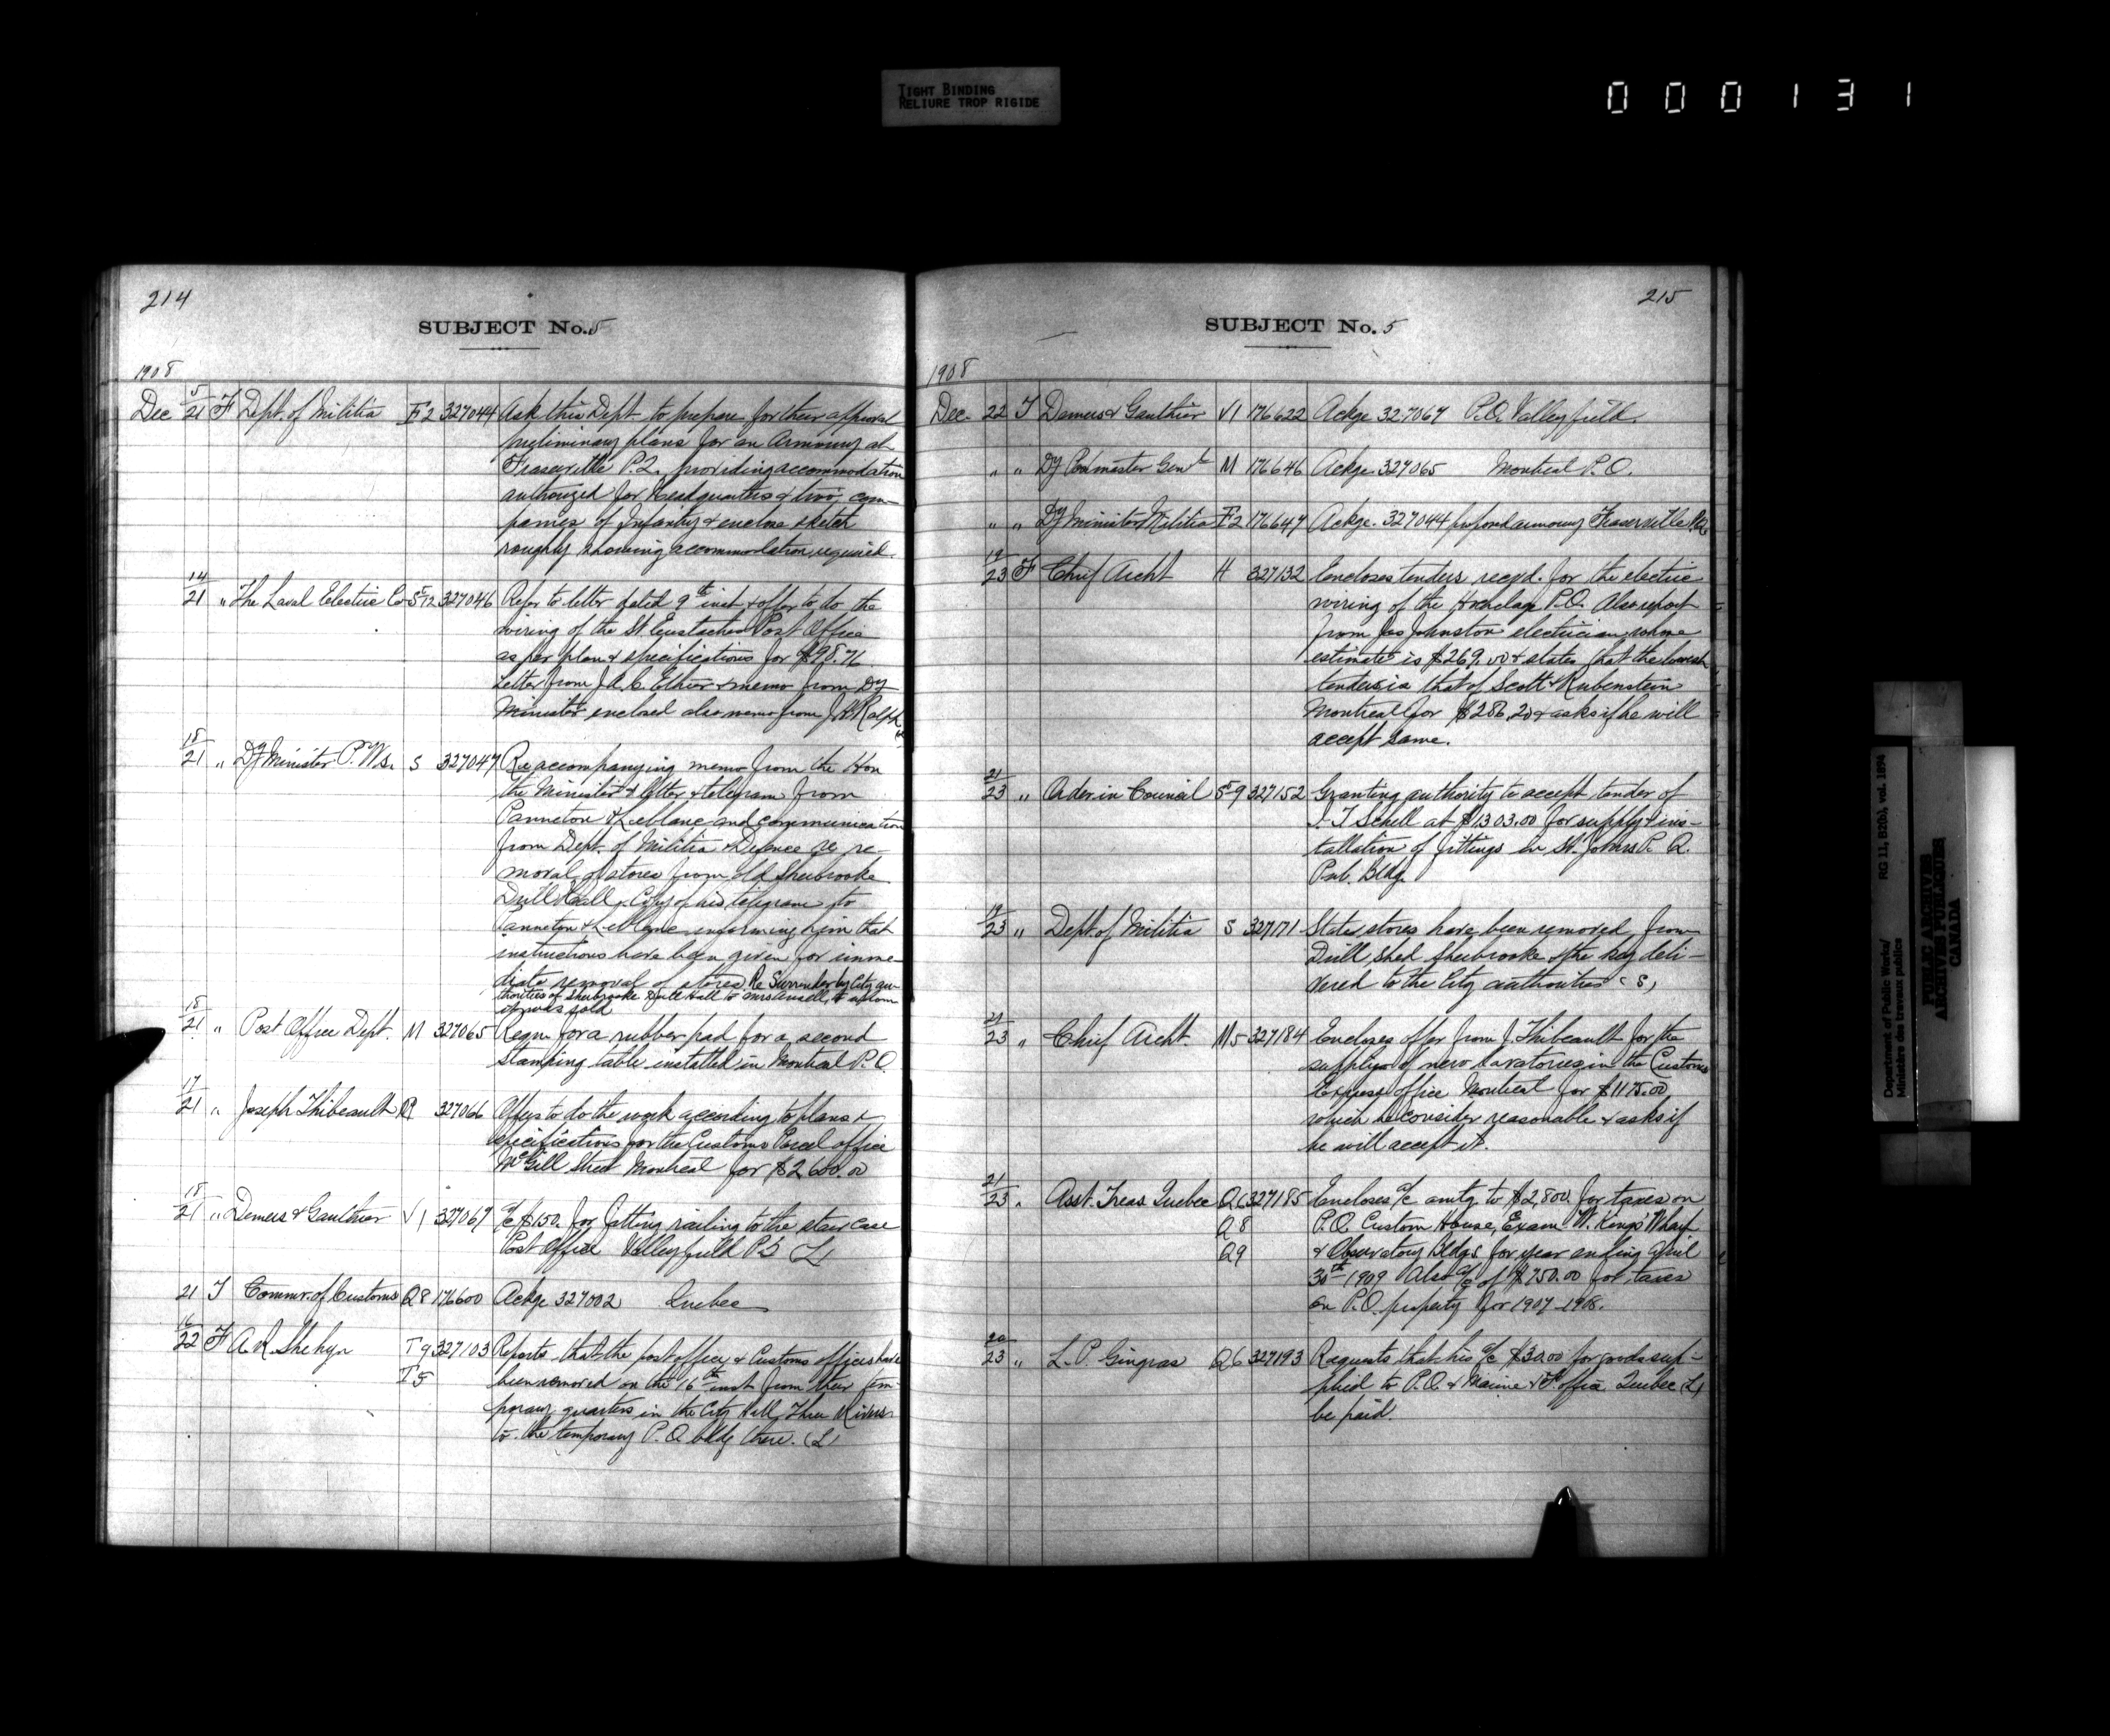 TIGHT BINDING
RELIURE TROP RIGIDE
000131
214
SUBJECT No. 5
1908
Dec 5/21 F Dept. of Militia F2 327044 Ask this Dept. to prepare for their approval
preliminary plans for an Armoury at
Fraserville P.Q. providing accommodation
authorized for Headquarters & two com-
panies of Infantry & enclose sketch
roughly showing accommodation required.
14/21 " The Laval Electric Co St12 327046 Refer to letter dated 9th inst & offer to do the
wiring of the St Eustache Post Office
as per plan & specifications for $98.76
Letter from J.A.C. Ethier & memo from Dy
Minister enclosed also memo from Ralph
18/21 " Dy Minister P. Ws. S 327047 Re accompanying memo from the Hon
the Minister & letter & telegram from
Panneton & Leblanc and communication
from Dept. of Militia & Defence re re-
moval of stores from old Sherbrooke
Drill Hall. Copy of his telegram to
Panneton & Leblanc informing him that
instructions have been given for imme-
diate removal of stores. Re Surrender by City au-
thorities of Sherbrooke Drill Hall to Mrs Ansell, to whom
it was sold
18/21 " Post Office Dept. M 327065 Requn for a rubber pad for a second
stamping table installed in Montreal P.O.
17/21 " Joseph Thibeault M 327066 Offers to do the work according to plans &
specifications for the Customs Parcel office
McGill Street Montreal for $2600.00
18/21 " Demers & Gauthier V1 327067 a/c $150. for fitting railing to the stair case
Post Office Valleyfield P.Q. (L)
21 T Commr. of Customs Q8 176600 Ackge 327002 Quebec
16/22 F A. R. Shehyn T9 327103 Reports that the post office & Customs offices have
T5 been removed on the 16th inst from their tem-
porary quarters in the City Hall, Three Rivers
to the temporary P.O. bldg there. (L)
215
SUBJECT No. 5
1908
Dec. 22 T Demers & Gauthier V1 176622 Ackge 327067 P.O. Valleyfield.
" " Dy Postmaster Genl M 176646 Ackge. 327065 Montreal P.O.
" " Dy Minister Militia F2 176647 Ackge. 327044 proposed armoury Fraserville P.Q.
19/23 F Chief Archt H 327132 Encloses tenders recvd. for the electric
wiring of the Hochelaga P.O. Also report
from Jas Johnston electrician whose
estimate is $269.00 & states that the lowest
tender is that of Scott & Rubenstein
Montreal for $286.20 & asks if he will
accept same.
21/23 " Order in Council St9 327152 Granting authority to accept tender of
J. T Schell at $1303.00 for supply & ins-
tallation of fittings in St. Johns P. Q.
Pub. Bldg.
19/23 " Dept. of Militia S 327171 States stores have been removed from
Drill shed Sherbrooke & the key deli-
vered to the City authorities (S)
21/23 " Chief Archt. M5 327184 Encloses offer from J. Thibeault for the
supply of new lavatories in the Customs
Express office Montreal for $1175.00
which he consider reasonable & asks if
he will accept it.
21/23 " Asst. Treas Quebec Q6 327185 Encloses a/c amtg to $2,800. for taxes on
Q8 P.O. Custom House, Exam. W. Kings' Wharf
Q9 & Observatory Bldgs. for year ending April
30th 1909 Also a/c of $750.00 for taxes
on P.O. property for 1907-1908.
20/23 " L. P. Gingras Q6 327193 Requests that his a/c $30.00 for goods sup-
plied to P.O. & Marine & F. office Quebec (L)
be paid.
Department of Public Works/
Ministère des travaux publics
RG 11, B2(b), vol. 1894
PUBLIC ARCHIVES
ARCHIVES PUBLIQUES
CANADA